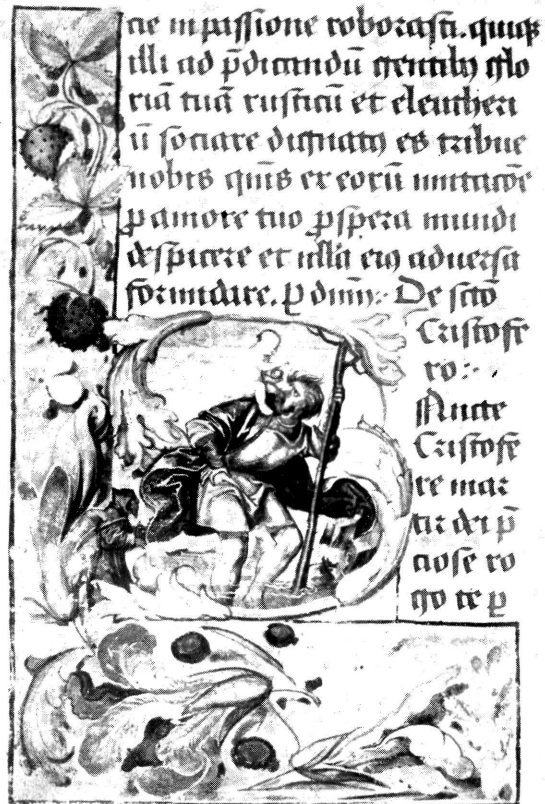 cie in passione roborasti. quiq₃
illi ad p̄dicandū gentiby glo
riā tuā rusticū et eleutheri
ū sociare dignatꝰ es tribue
nobis qm̄s ex eorū imitacōe
ꝓ amore tuo ꝓspera mundi
despicere et nlla eiꝰ aduersa
formidare. ꝑ dnm̄. De scto
Cristofe
ro:
Sancte
Cristofe
re mar
tir dei p̄
ciose ro
go te ꝑ